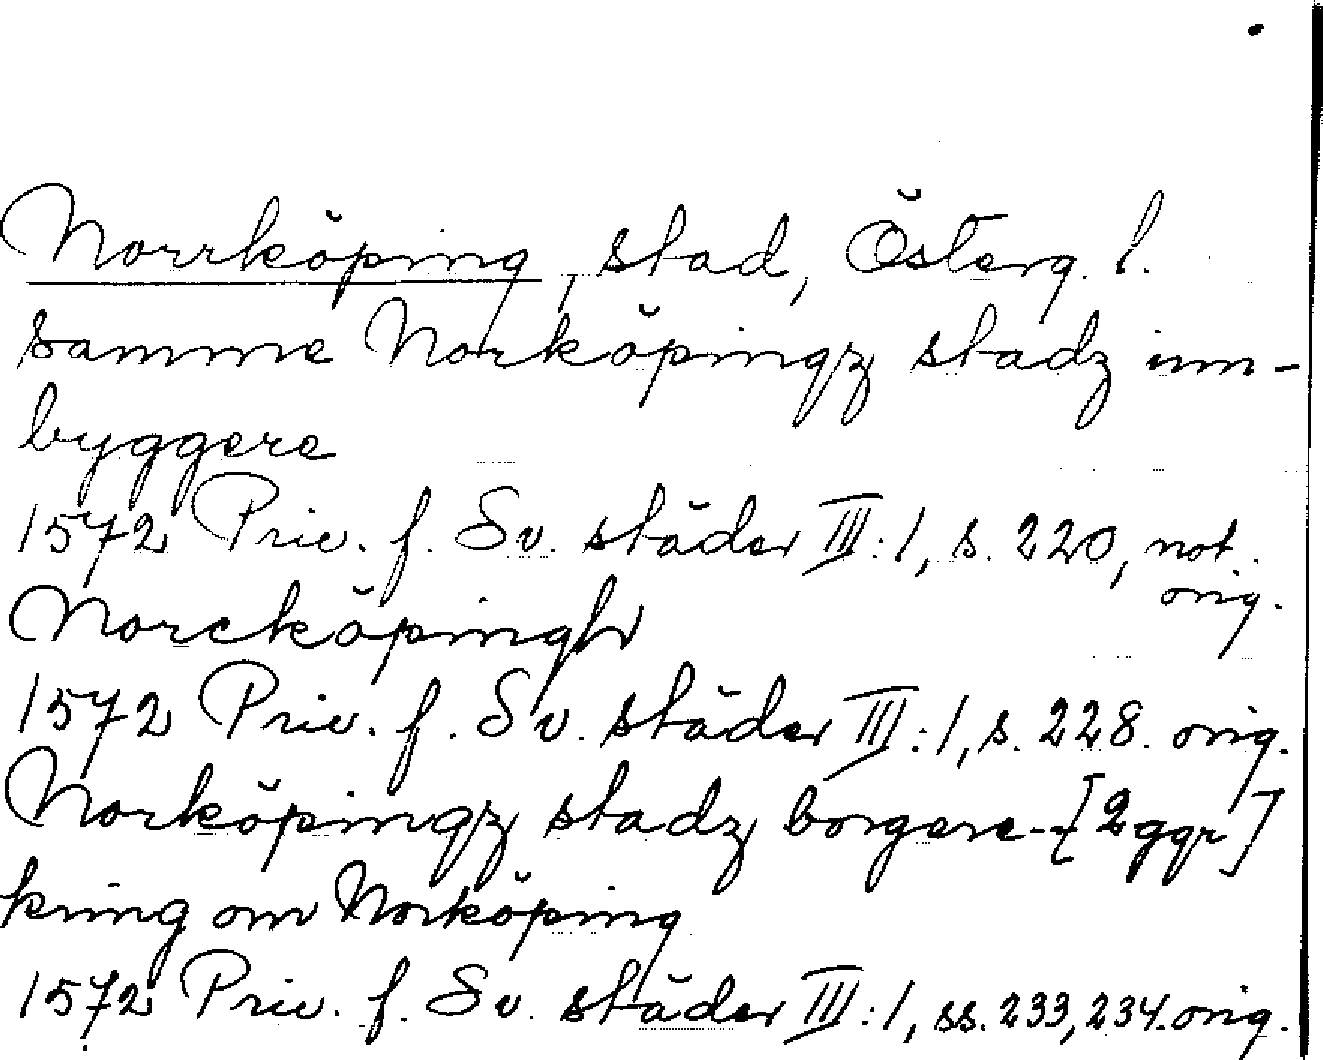 Norrköping, stad, Österg. l.
samme Norköpingz stadz inn-
byggere
1572 Priv. f. Sv. städer III:1, s. 220, not.
orig.
Norcköpingh
1572 Priv. f. Sv. städer III:1, s. 228. orig.
Norköpingz stadz borgere-- [2 ggr]
kring om Norköping
1572 Priv. f. Sv. städer III:1, ss. 233, 234. orig.